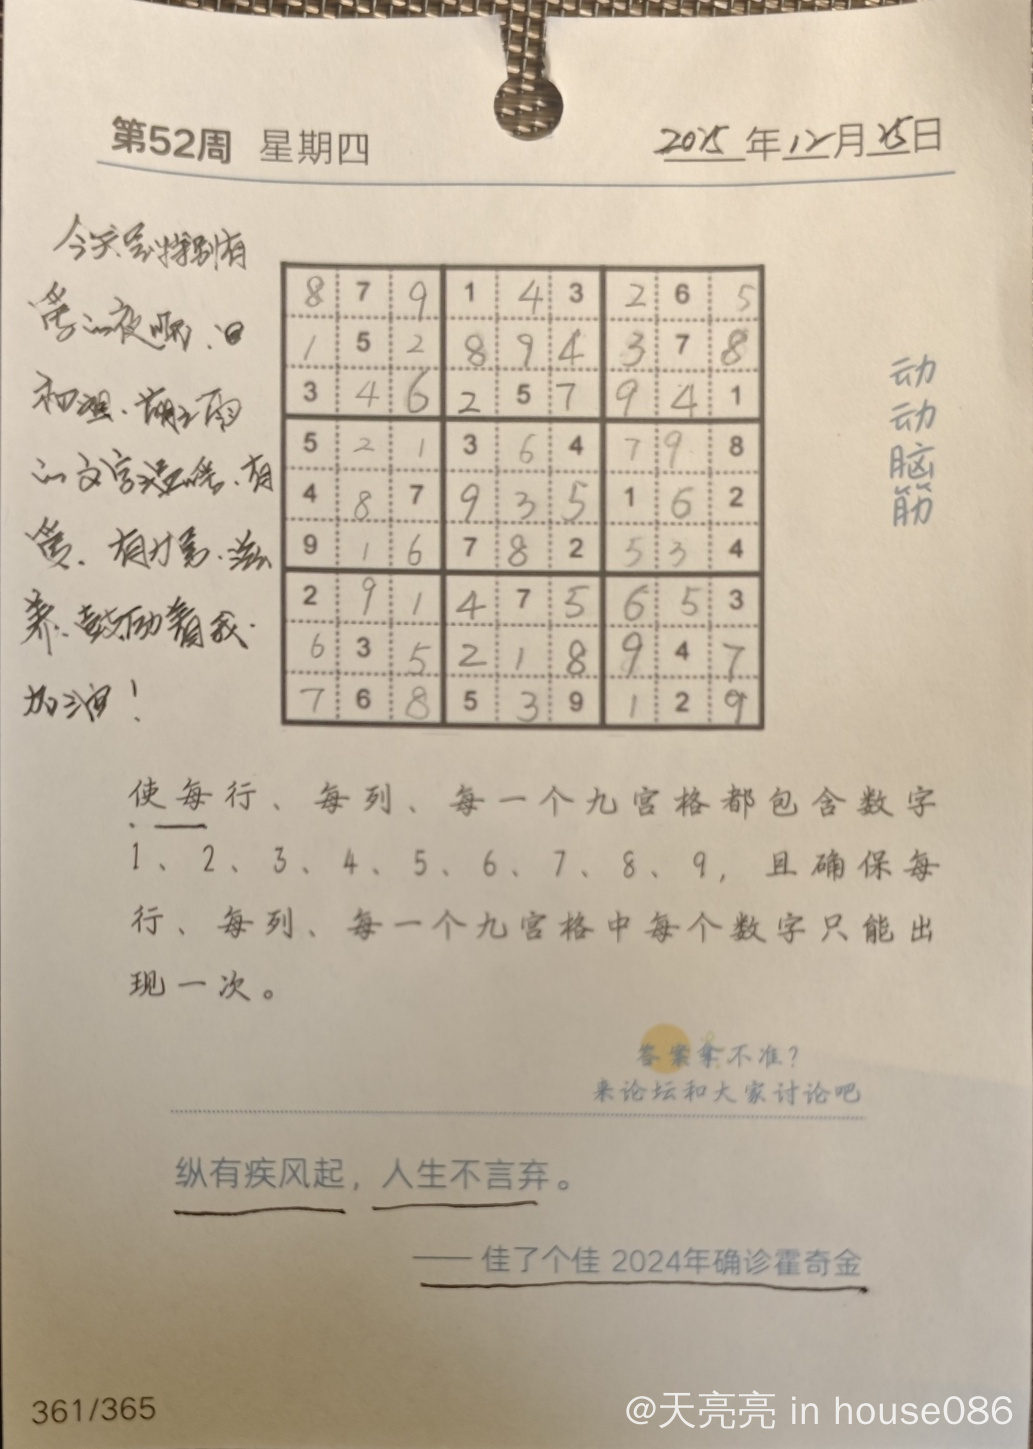 第52周 星期四
2025年12月25日
今天是特别有
8 7 9 1 4 3 2 6 5
1 5 2 8 9 4 3 7 8
3 4 6 2 5 7 9 4 1
5 2 1 3 6 4 7 9 8
4 8 7 9 3 5 1 6 2
9 1 6 7 8 2 5 3 4
2 9 1 4 7 5 6 5 3
6 3 5 2 1 8 9 4 7
7 6 8 5 3 9 1 2 9
加油！
动动脑筋
使每行、每列、每一个九宫格都包含数字
1、2、3、4、5、6、7、8、9，且确保每
行、每列、每一个九宫格中每个数字只能出
现一次。
答案拿不准？
来论坛和大家讨论吧
纵有疾风起，人生不言弃。
—— 佳了个佳 2024年确诊霍奇金
361/365
@天亮亮 in house086